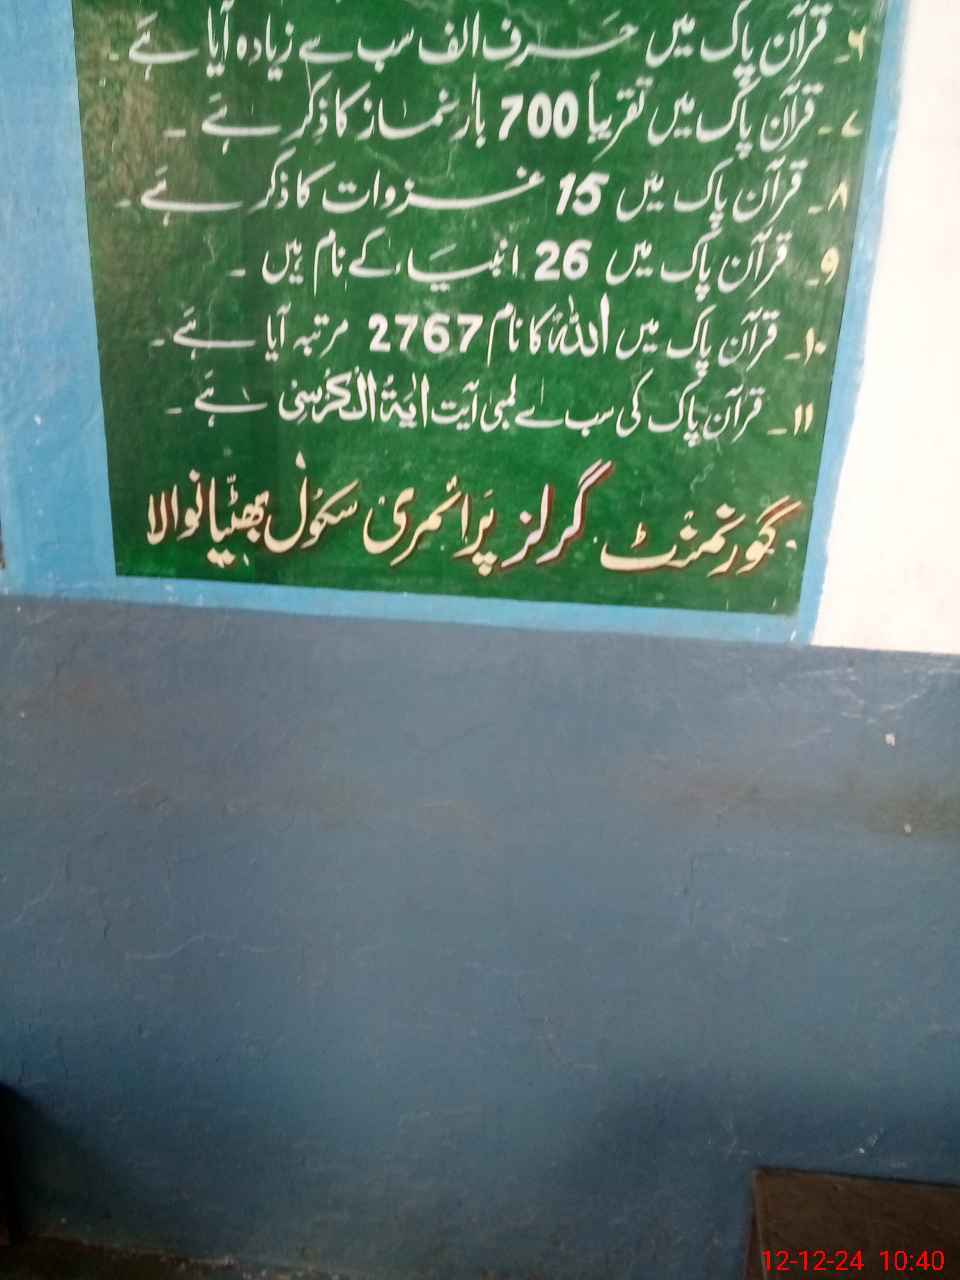 ۶۔ قرآن پاک میں حرف الف سب سے زیادہ آیا ہے۔
۷۔ قرآن پاک میں تقریباً 700 بار نماز کا ذکر ہے۔
۸۔ قرآن پاک میں 15 غزوات کا ذکر ہے۔
۹۔ قرآن پاک میں 26 انبیاء کے نام ہیں۔
۱۰۔ قرآن پاک میں اللہ کا نام 2767 مرتبہ آیا ہے۔
۱۱۔ قرآن پاک کی سب سے لمبی آیت اٰیۃُ الْکُرْسِی ہے۔
گورنمنٹ گرلز پرائمری سکول بھٹیانوالا
12-12-24 10:40